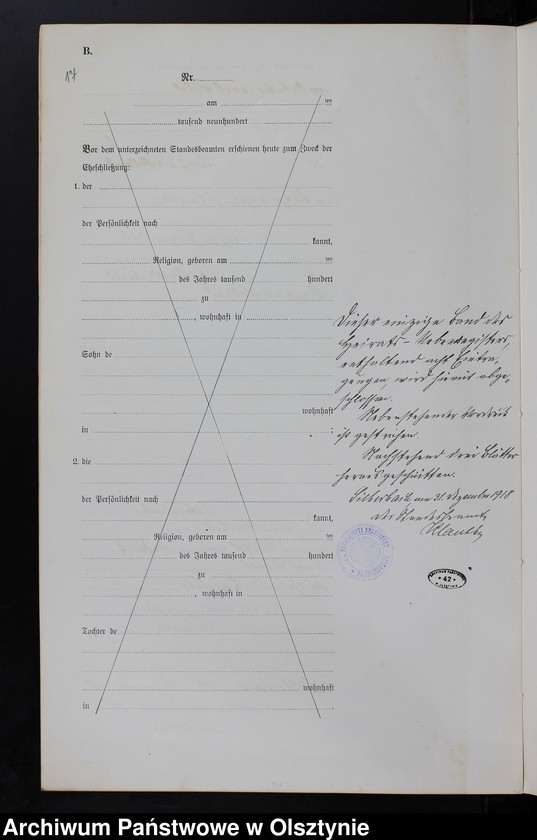 B.
17
Nr.
am ten
tausend neunhundert
Vor dem unterzeichneten Standesbeamten erschienen heute zum Zweck der
Eheschließung:
1. der
der Persönlichkeit nach
kannt,
Religion, geboren am ten
des Jahres tausend hundert
zu
, wohnhaft in
Sohn de
wohnhaft
in ;
2. die
der Persönlichkeit nach
kannt,
Religion, geboren am ten
des Jahres tausend hundert
zu
, wohnhaft in
Tochter de
wohnhaft
in
Dieser einzige Band des
Heirats-Nebenregisters,
enthaltend acht Eintra-
gungen, wird hiermit abge-
schlossen.
Nebenstehender Vordruck
ist gestrichen.
Nachstehend drei Blätter
herausgeschnitten.
Silberbach am 31. Dezember 1918
Der Standesbeamte
42
Archiwum Państwowe w Olsztynie